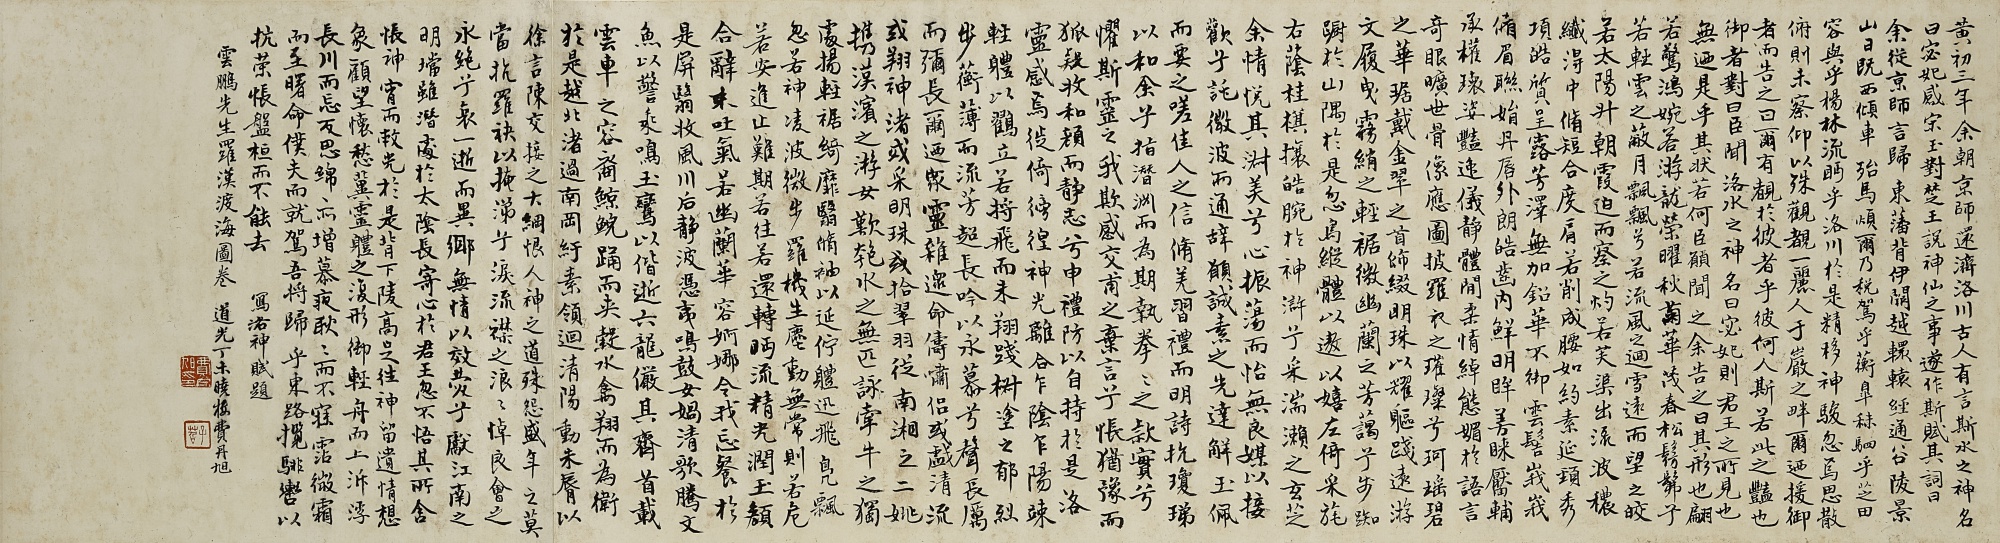 黃初三年余朝京師還濟洛川古人有言斯水之神名
曰宓妃感宋玉對楚王說神仙之事遂作斯賦其詞曰
余從京師言歸東藩背伊闕越轘轅經通谷陵景
山日既西傾車殆馬煩爾乃稅駕乎蘅皋秣駟乎芝田
容與乎楊林流眄乎洛川於是精移神駭忽焉思散
俯則未察仰以殊觀覩一麗人于巖之畔爾迺援御
者而告之曰爾有覿於彼者乎彼何人斯若此之豔也
御者對曰臣聞洛水之神名曰宓妃則君王之所見也
無迺是乎其狀若何臣願聞之余告之曰其形也翩
若驚鴻婉若游龍榮曜秋菊華茂春松髣髴乎
若輕雲之蔽月飄飄兮若流風之迴雪遠而望之皎
若太陽升朝霞迫而察之灼若芙渠出流波穠
纖得中脩短合度肩若削成腰如約素延頸秀
項皓質呈露芳澤無加鉛華不御雲髻峩峩
脩眉聯娟丹唇外朗皓齒內鮮明眸善睞靨輔
承權瓌姿豔逸儀靜體閒柔情綽態媚於語言
奇眼曠世骨像應圖披羅衣之璀璨兮珥瑤碧
之華琚戴金翠之首飾綴明珠以耀軀踐遠游
文履曳霧綃之輕裾微幽蘭之芳藹兮步踟
躕於山隅於是忽焉縱體以遨以嬉左倚采旄
右蔭桂棋攘皓腕於神滸兮采湍瀨之玄芝
余情悅其淑美兮心振蕩而怡無良媒以接
歡兮託微波而通辭願誠素之先達解玉佩
而要之嗟佳人之信脩羌習禮而明詩抗瓊珶
以和余兮指潛淵而為期執拳〻之款實兮
懼斯靈之我欺感交甫之棄言兮悵猶豫而
狐疑收和顏而靜志兮申禮防以自持於是洛
靈感焉徙倚徬徨神光離合乍陰乍陽竦
輕體以鶴立若將飛而未翔踐椒塗之郁烈
步蘅薄而流芳超長吟以永慕兮聲長厲
而彌長爾迺眾靈雜遝命儔嘯侶或戲清流
或翔神渚或采明珠或拾翠羽從南湘之二姚
攜漢濱之游女歎匏水之無匹詠牽牛之獨
處揚輕裾綺靡翳脩袖以延佇體迅飛鳧飄
忽若神凌波微步羅機生塵動無常則若危
若安進止難期若往若還轉眄流精光潤玉顏
合辭未吐氣若幽蘭華容婀娜令我忘餐於
是屏翳收風川后靜波馮夷鳴鼓女媧清歌騰文
魚以警乘鳴玉鸞以偕逝六龍儼其齊首載
雲車之容裔鯨鯢踊而夾轂水禽翔而為衛
於是越北渚過南岡紆素領迴清陽動朱脣以
徐言陳交接之大綱恨人神之道殊怨盛年之莫
當抗羅袂以掩涕兮淚流襟之浪〻悼良會之
永絕兮哀一逝而異鄉無情以效愛兮獻江南之
明璫雖潛處於太陰長寄心於君王忽不悟其所舍
悵神宵而蔽光於是背下陵高足往神留遺情想
象顧望懷愁冀靈體之復形御輕舟而上泝浮
長川而忘反思綿〻而增慕夜耿〻而不寐霑微霜
而至曙命僕夫而就駕吾將歸乎東路攬騑轡以
抗榮悵盤桓而不能去
雲鵬先生羅漢渡海圖卷　寫洛神賦題
道光丁未曉樓費丹旭